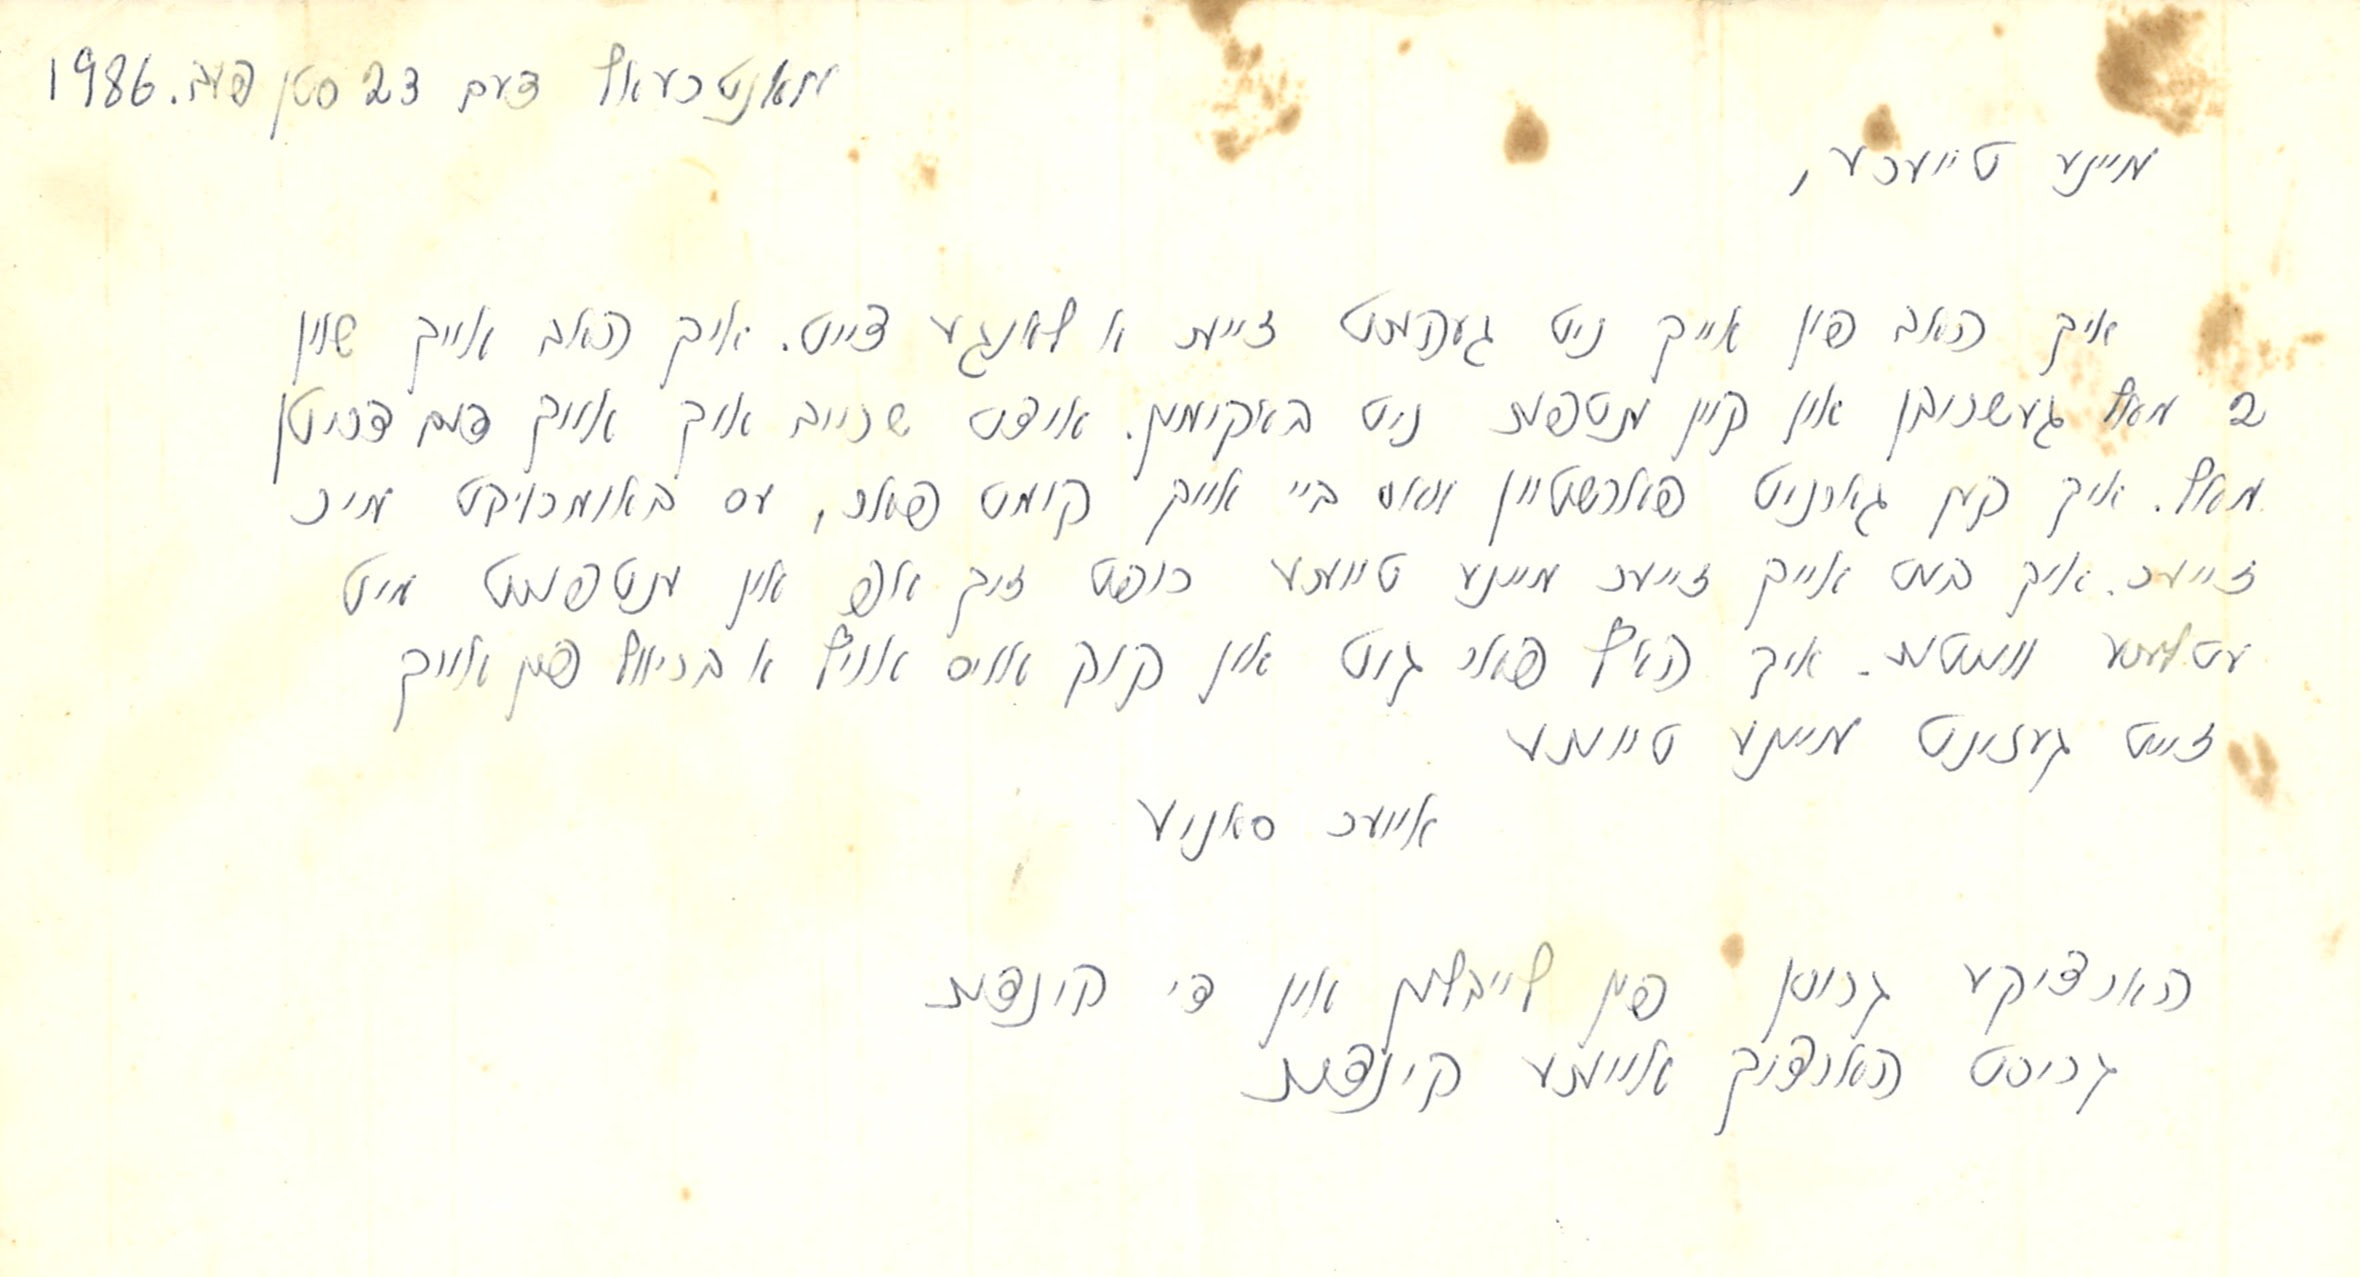 מאנטרעאל דעם 23סטן פעב. 1986
מיינע טייערע,
איך האב פון אייך ניט געהערט זייער א לאנגע צייט. איך האב אייך שוין
2 מאל געשריבן און קיין ענטפער ניט באקומען. אויצט שרייב איך אייך צום דריטן
מאל. איך קען גארניט פארשטיין וואס ביי אייך קומט פאר, עס באומרויקט מיר
זייער. איך בעט אייך זייער מיינע טייערע רופט זיך אפ און ענטפערט מיט
עטלעכע ווערטער. איך האלף פאר גוט און קוק אויס אויף א בריוול פון אייך
זייט געזונט מיינע טייערע
אייער סאניע
הארציקע גרוסן פון לייבלען און די קינדער
גריסט הארציך אייערע קינדער